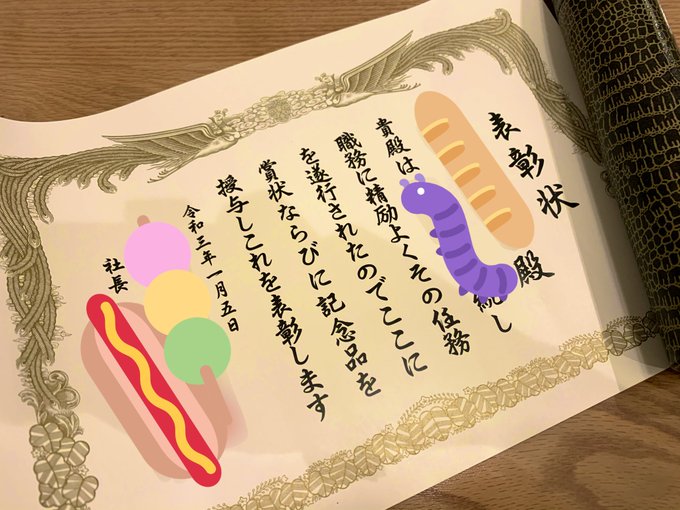 表彰状
殿
貴殿は
続し
職務に精励よくその任務
を遂行されたのでここに
賞状ならびに記念品を
授与しこれを表彰します
令和三年一月五日
社長